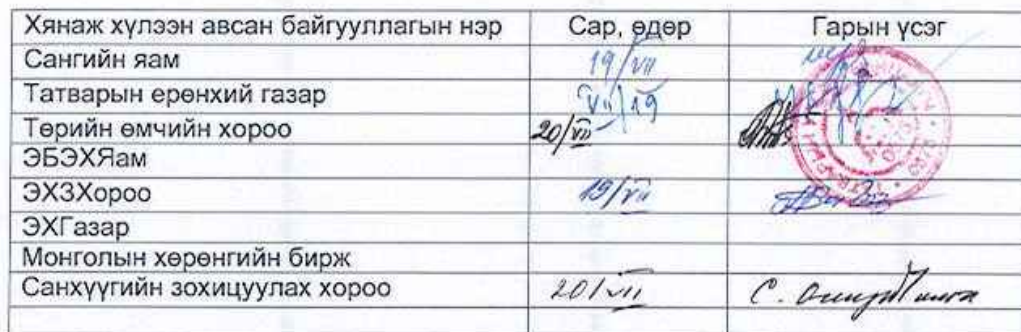 Хянаж хүлээн авсан байгууллагын нэр Сар, өдөр Гарын үсэг
Сангийн яам 19/VII
Татварын ерөнхий газар VII/19
Төрийн өмчийн хороо 20/VII
ЭБЭХЯам
ЭХЗХороо 19/VII
ЭХГазар
Монголын хөрөнгийн бирж
Санхүүгийн зохицуулах хороо 20/VII С.